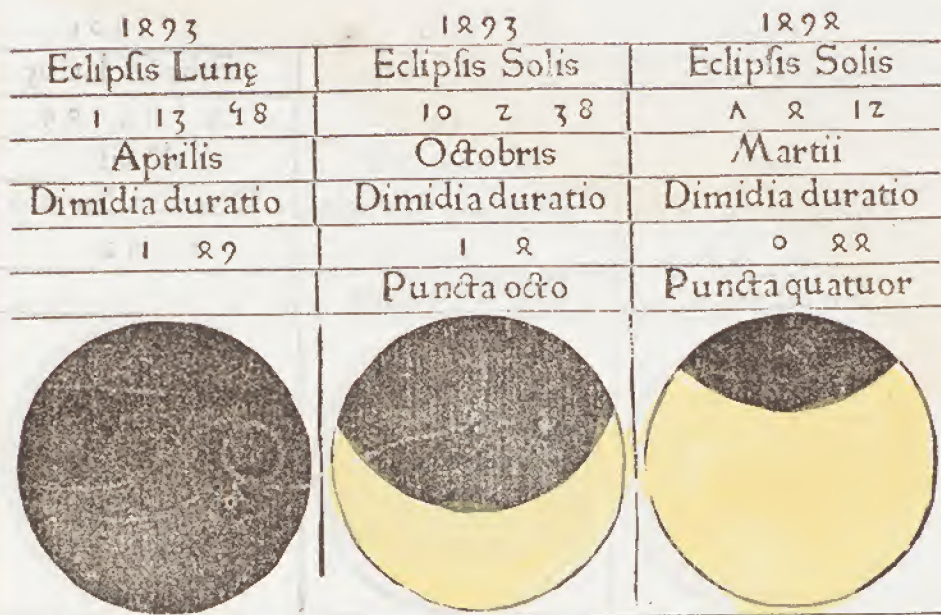 1493 1493 1494
Eclipſis Lunę Eclipſis Solis Eclipſis Solis
1 13 58 10 2 38 7 4 12
Aprilis Octobris Martii
Dimidia duratio Dimidia duratio Dimidia duratio
1 49 1 4 0 44
Puncta octo Puncta quatuor